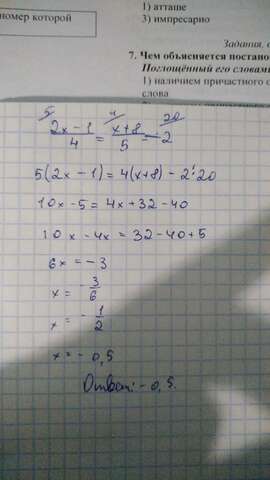 номер которой
1) атташе
3) импресарио
Задания,
7. Чем объясняется постано
Поглощённый его словами
1) наличием причастного о
слова
5 4 20
(2x - 1)/4 = (x+8)/5 - 2
5(2x - 1) = 4(x+8) - 2·20
10x - 5 = 4x + 32 - 40
10x - 4x = 32 - 40 + 5
6x = - 3
x = - 3/6
x = - 1/2
x = - 0,5
Ответ: - 0,5.